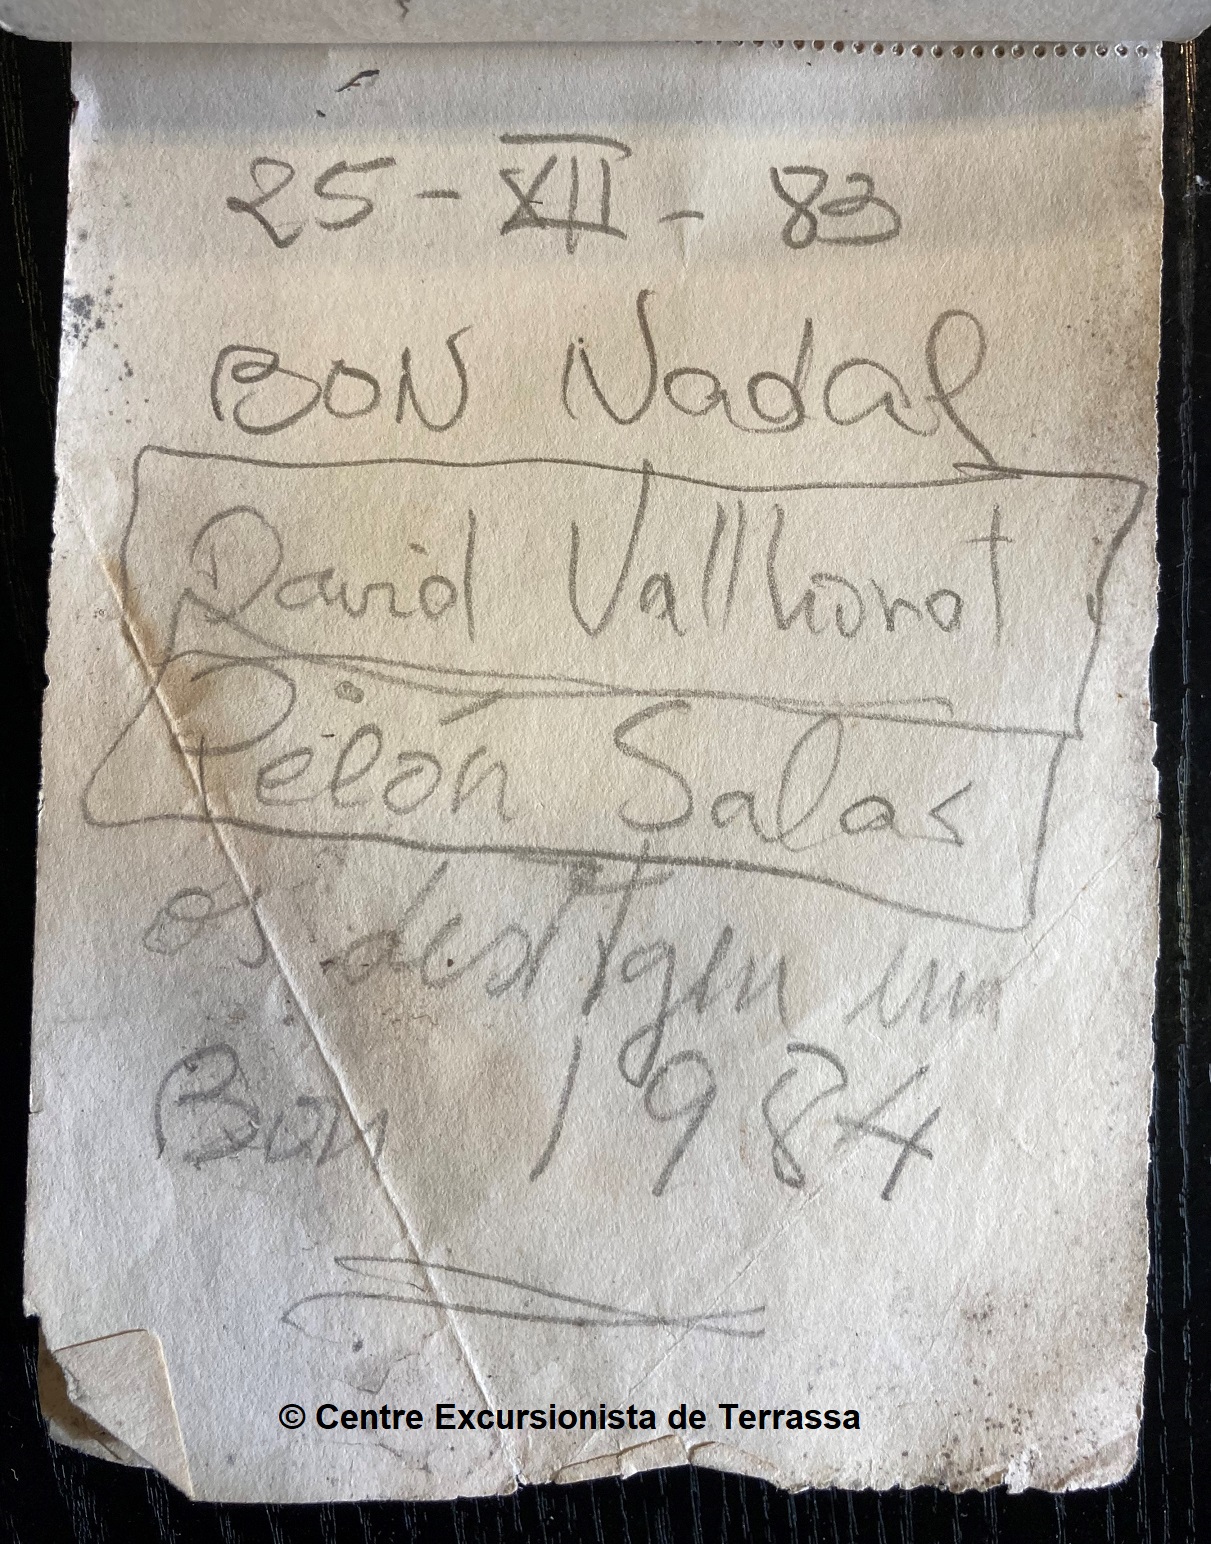 25 - XII - 83
BON Nadal
David Vallhonat
Pelón Salas
os desitgen un
Bon 1984
© Centre Excursionista de Terrassa